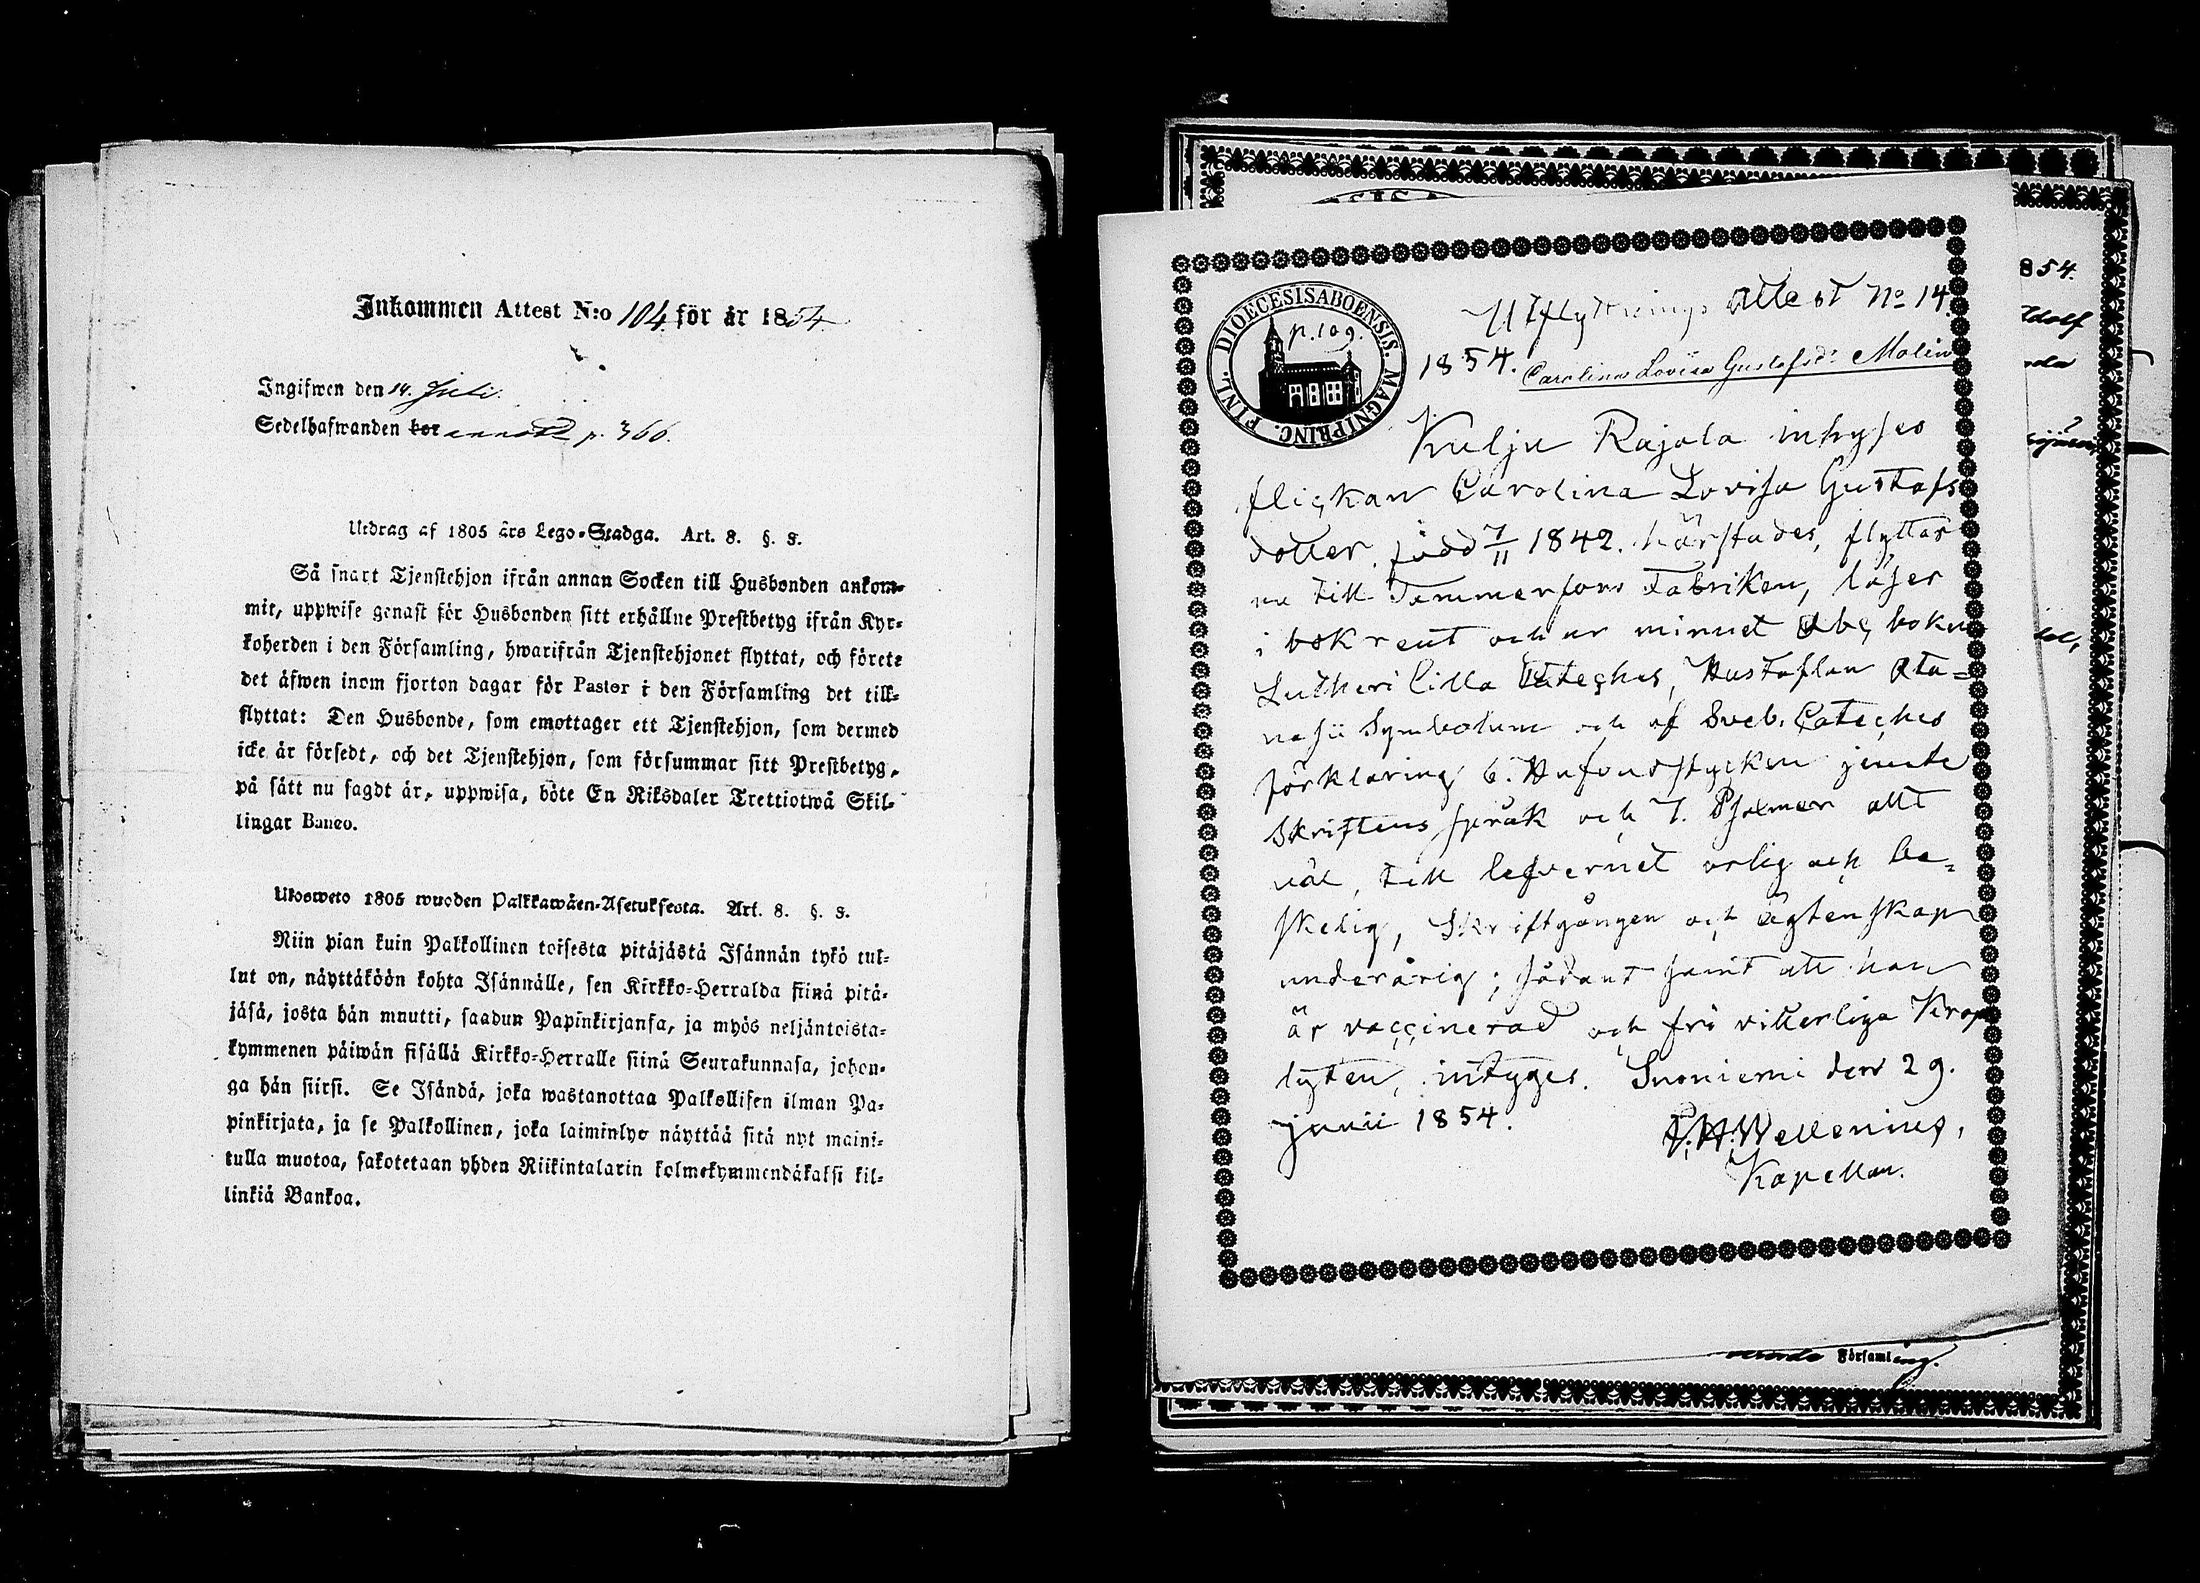 Inkommen Attest N:o 104 för år 1854
Ingifwen den 14. Juli.
Sedelhafwanden bor annotd p. 366.
Utdrag af 1805 års Lego-Stadga. Art. 8. §. 8.
Så snart Tjenstehjon ifrån annan Socken till Husbonden ankom-
mit, uppwise genast för Husbonden sitt erhållne Prestbetyg ifrån Kyr-
koherden i den Församling, hwarifrån Tjenstehjonet flyttat, och förete
det äfwen inom fjorton dagar för Pastor i den Församling det till-
flyttat: Den Husbonde, som emottager ett Tjenstehjon, som dermed
icke är försedt, och det Tjenstehjon, som försummar sitt Prestbetyg,
på sätt nu sagdt är, uppwisa, böte En Riksdaler Trettiotwå Skil-
lingar Banco.
Ulosweto 1805 wuoden Palkkawäen-Asetuksesta. Art. 8. §. 8.
Niin pian kuin Palkollinen toisesta pitäjästä Isännän tykö tul-
lut on, näyttäköön kohta Isännälle, sen Kirkko-Herralda siinä pitä-
jäsä, josta hän muutti, saadun Papinkirjansa, ja myös neljäntoista-
kymmenen päiwän sisällä Kirkko-Herralle siinä Seurakunnasa, johon-
ga hän siirsi. Se Isändä, joka wastanottaa Palkollisen ilman Pa-
pinkirjata, ja se Palkollinen, joka laiminlyö näyttää sitä nyt maini-
tulla muotoa, sakotetaan yhden Riikintalarin kolmekymmendäkaksi kil-
linkiä Bankoa.
DIOECESIS ABOENSIS. MAGNI PRINC. FINL.
p. 109.
Utflyttnings Attest No 14
1854. Carolina Lovisa Gustafsdr Molin
Kulju Rajala inhyses
flickan Carolina Lovisa Gustafs
dotter, född 7/11 1842. härstädes, flyttar
nu till Temmerfors Fabriken, läser
i bok rent och ur minnet Abc boken
Lutheri lilla Cateches, Hustaflan Ata=
nasii Symbolum och af Sveb. Cateches
förklaring 6. Hufvudstycken jemte
Skriftens språk och 7. Psalmer allt
väl, till lefvernet ärlig och be=
skedlig, Skriftgången och ägtenskap
underårig; sådant samt att hon
är vaccinerad och fri vitterliga Krop
lyten, intyges. Suoniemi den 29.
junii 1854.
Wellenius,
Kapellan.
854.
Församling.